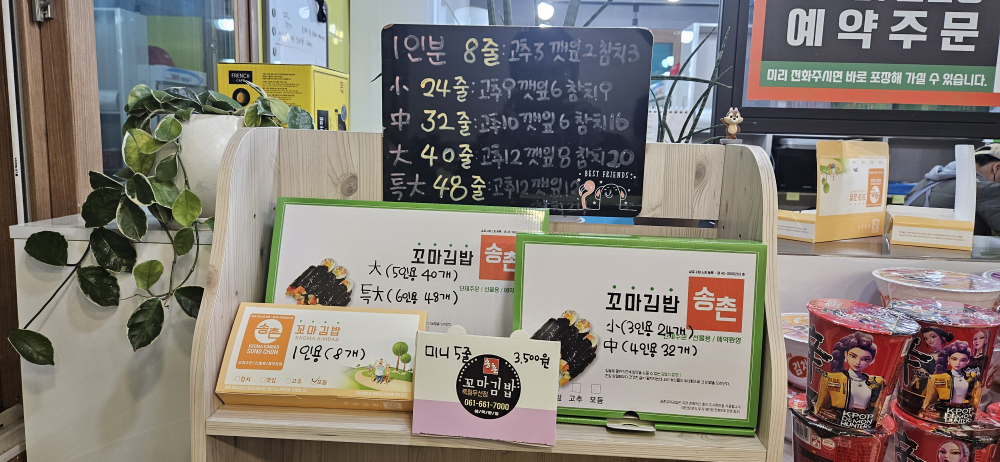 예약주문
미리 전화주시면 바로 포장해 가실 수 있습니다.
1인분 8줄:고추3 깻잎2 참치3
小 24줄:고추9 깻잎6 참치9
中 32줄:고추10 깻잎6 참치16
大 40줄:고추12 깻잎8 참치20
특大 48줄:고추12 깻잎
BEST FRIENDS
FRENCH
CAFE
꼬마김밥 송촌
大(5인용 40개)
특大(6인용 48개)
단체주문 / 선물용 / 예약
꼬마김밥 송촌
小(3인용 24개)
中(4인용 32개)
단체주문 / 선물용 / 예약환영
고추 모듬
송촌 꼬마김밥
KKOMA KIMBAB
KKOMA KIMBAB
SONG CHON
1인용(8개)
미니 5줄 3,500원
송촌
꼬마김밥
061-661-7000
K-POP
DEMON
HUNTERS
K-POP
DEMON
HUNTERS